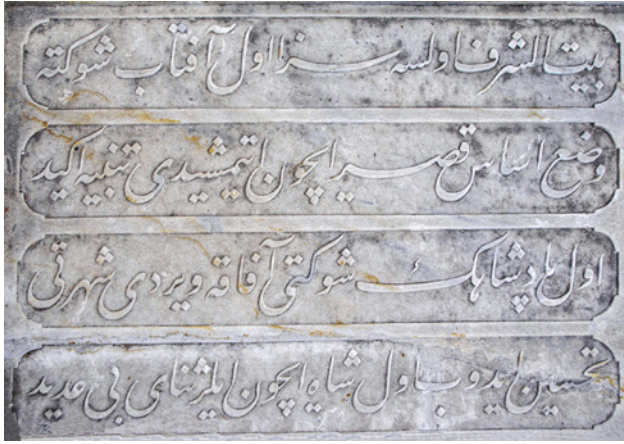 بيت الشرف اولسه سزا اول آفتاب شوكته
وضع اساس قصر ايچون ايتمشيدى تنبيه اكيد
اول پادشاهك شوكتى آفاقه ويردى شهرتى
تحسين ايدوب اول شاه ايچون ايلر ثناى بى عديد